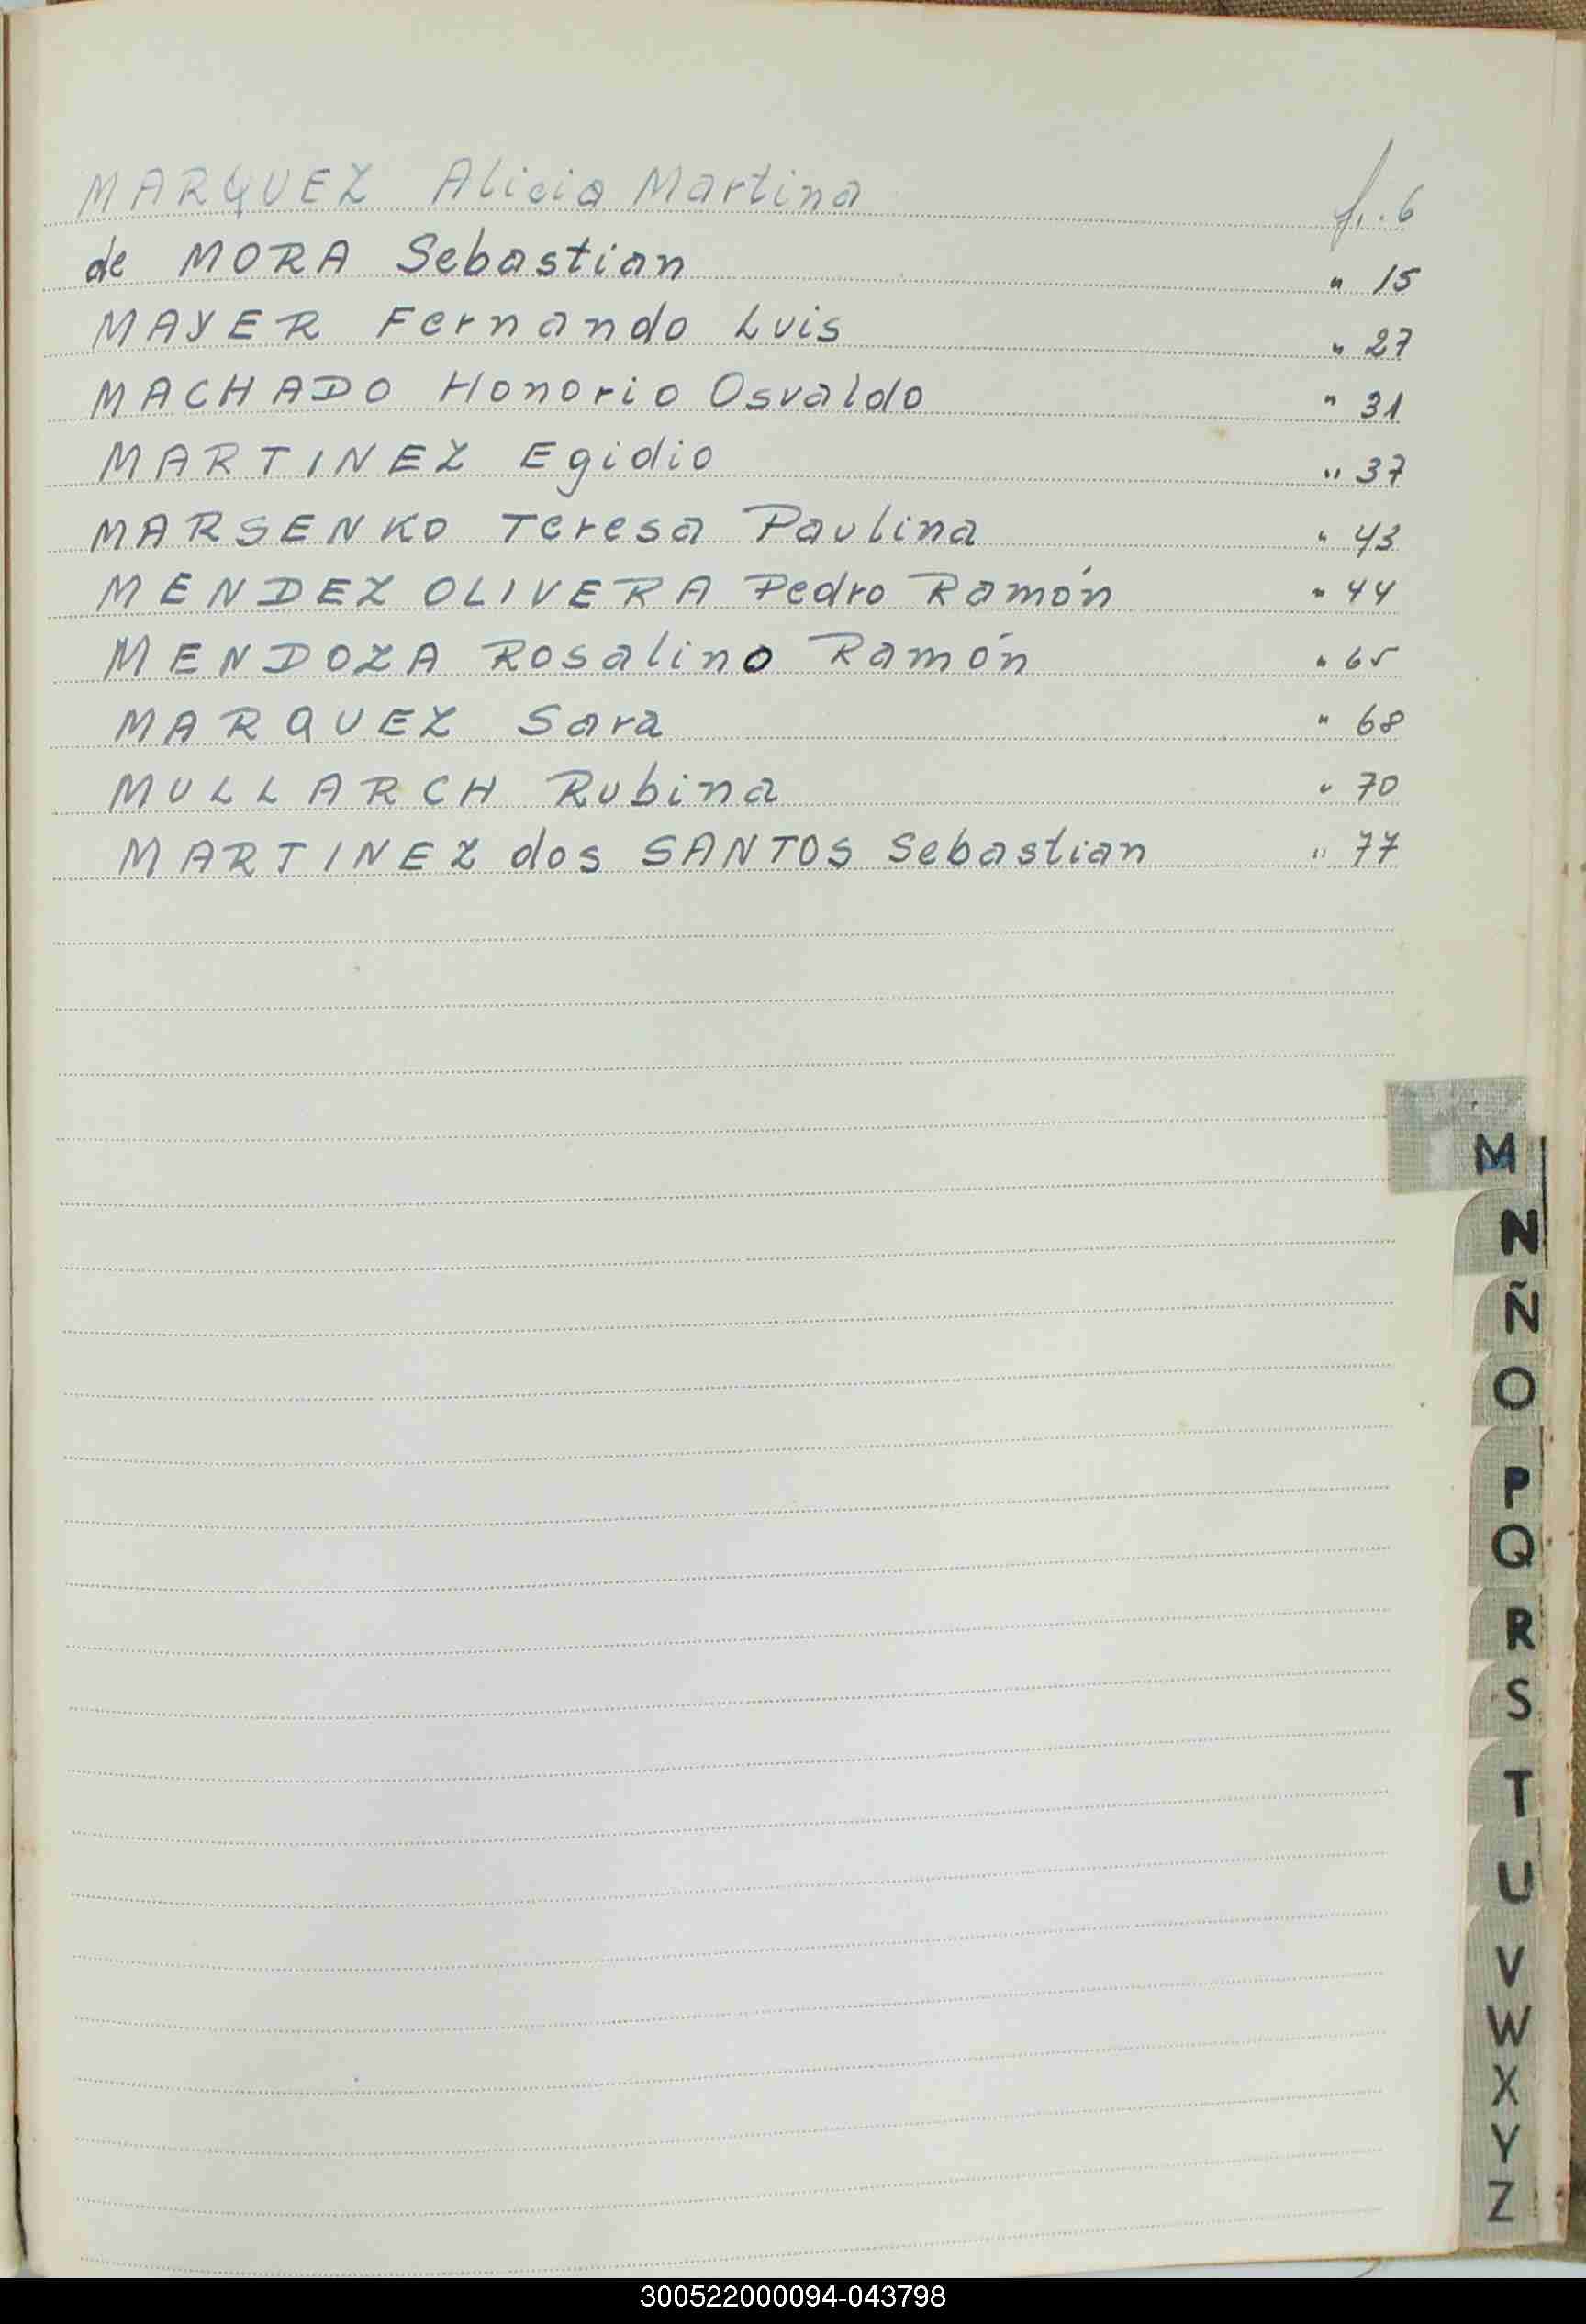 MARQUEZ Alicia Martina f. 6
de MORA Sebastian " 15
MAYER Fernando Luis " 27
MACHADO Honorio Osvaldo " 31
MARTINEZ Egidio " 37
MARSENKO Teresa Paulina " 43
MENDEZ OLIVERA Pedro Ramón " 44
MENDOZA Rosalino Ramón " 65
MARQUEZ Sara " 68
MULLARCH Rubina " 70
MARTINEZ dos SANTOS Sebastian " 77
M
N
Ñ
O
P
Q
R
S
T
U
V
W
X
Y
Z
300522000094-043798